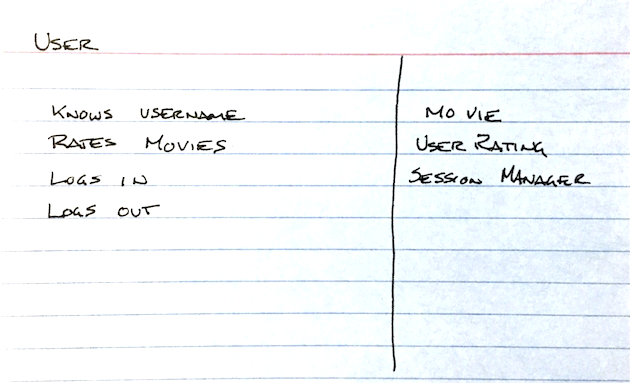 User
Knows username
Rates Movies
Logs in
Logs out
Movie
User Rating
Session Manager